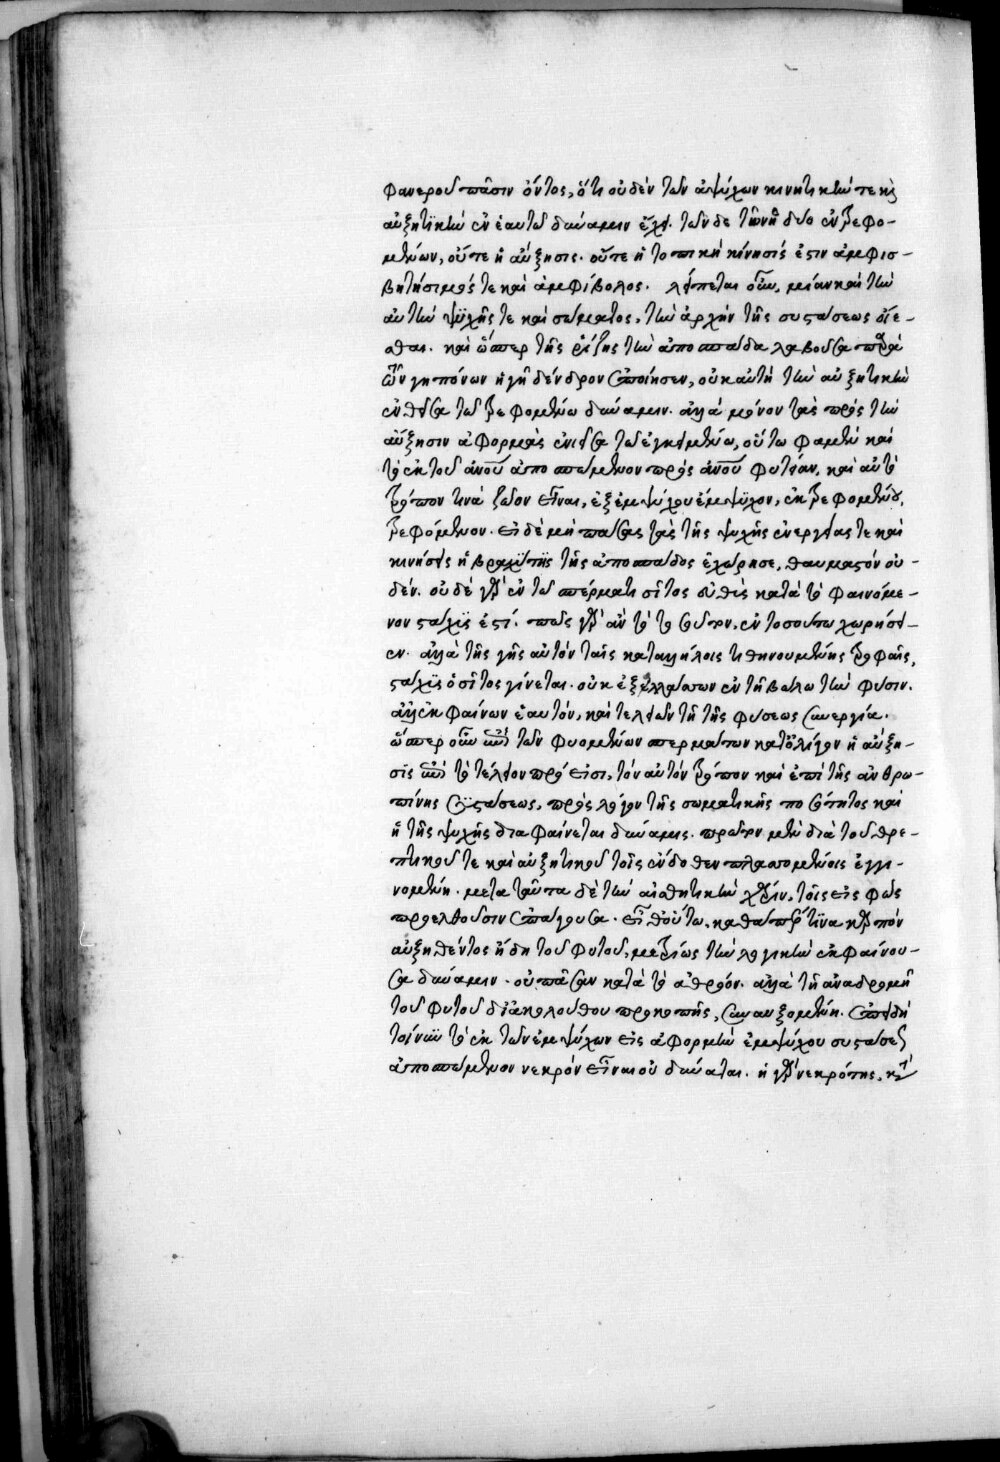 φανεροῦ πᾶσιν ὄντος, ὅτι οὐδὲν τῶν ἀψύχων κινητικήν τε κὶ
αὐξητικὴν ἐν ἑαυτῶ δύναμιν ἔχει. τῶν δε τῆ νηδύϊ ἐντρεφο-
μένων, οὔτε ἡ αὔξησις. οὔτε ἡ τοπικὴ κίνησίς ἐστιν ἀμφισ-
βητήσιμός τε καὶ ἀμφίβολος. λείπεται οὖν, μίαν καὶ τὴν
αὐτὴν ψϋχῆς τε καὶ σώματος, τὴν ἀρχὴν τῆς συστάσεως οἴε-
σθαι. καὶ ὥσπερ τῆς ῥίζης τὴν ἀποσπάδα λαβοῦσα παρὰ
τῶν γηπόνων ἡ γῆ δένδρον ἐποίησεν, οὐκ αὐτὴ τὴν αὐξητικὴν
ἐνθεῖσα τῶ τρεφομένω δύναμιν. ἀλλὰ μόνον τὰς πρὸς τὴν
αὔξησιν ἀφορμὰς ἐνιεῖσα τῶ ἐγκειμένω, οὕτω φαμὲν καὶ
τὸ ἐκ τοῦ ἀνου ἀποσπώμενον πρὸς ἀνου φυτείαν, καὶ αὐτὸ
τρόπον τινὰ ζῶον εἶναι, ἐξ ἐμψύχου ἔμψϋχον, ἐκ τρεφομένου,
τρεφόμενον. εἰ δὲ μὴ πάσας τὰς τῆς ψυχῆς ἐνεργείας τε καὶ
κινήσεις ἡ βραχύτης τῆς ἀποσπάδος ἐχώρησε, θαυμαστὸν οὐ-
δέν. οὐδὲ γὰρ ἐν τῶ σπέρματι σῖτος εὐθὺς κατὰ τὸ φαινόμε-
νον στάχϋς ἐστί. πῶς γὰρ ἂν τὸ τοσοῦτον, ἐν τοσούτω χωρήσει-
εν. ἀλλὰ τῆς γῆς αὐτὸν ταῖς καταλλήλοις τιθηνουμένης τροφαῖς,
στάχϋς ὁ σῖτος γίνεται. οὐκ ἐξαλλάσσων ἐν τῆ βώλω τὴν φύσιν.
ἀλλ' ἐκφαίνων ἑαυτὸν, καὶ τελειῶν τῆ τῆς φύσεως συνεργία.
ὥσπερ οὖν ἐπὶ τῶν φυομένων σπερμάτων κατ' ὀλίγον ἡ αὔξη-
σϊς ἐπὶ τὸ τέλειον πρόεισι, τὸν αὐτὸν τρόπον καὶ ἐπὶ τῆς ἀνθρω-
πίνης συστάσεως, πρὸς λόγον τῆς σωματικῆς ποσότητος καὶ
ἡ τῆς ψυχῆς διαφαίνεται δύναμις. πρῶτον μὲν διὰ τοῦ θρε-
πτικοῦ τε καὶ αὐξητικοῦ τοῖς ἔνδοθεν πλασσομένοις ἐγγι-
νομένη. μετα ταῦτα δὲ τὴν αἰσθητικὴν χάριν, τοῖς εἰς φῶς
προελθοῦσιν ἐπάγουσα. εἶθ' οὕτω, καθάπερ τϊνα καρπὸν
αὐξηθέντος ἤδη τοῦ φυτοῦ, μετρίως τὴν λογικὴν ἐκφαίνου-
σα δύναμιν. οὐ πᾶσαν κατὰ τὸ ἀθρόον. ἀλλὰ τῆ ἀναδρομῆ
τοῦ φυτοῦ δι' ἀκολούθου προκοπῆς, συναυξομένη. ἐπειδὴ
τοίνϋν τὸ ἐκ τῶν ἐμψύχων εἰς ἀφορμὴν ἐμψύχου συστάσεως
ἀποσπώμενον νεκρὸν εἶναι οὐ δύναται. ἡ γὰρ νεκρότης, κατὰ